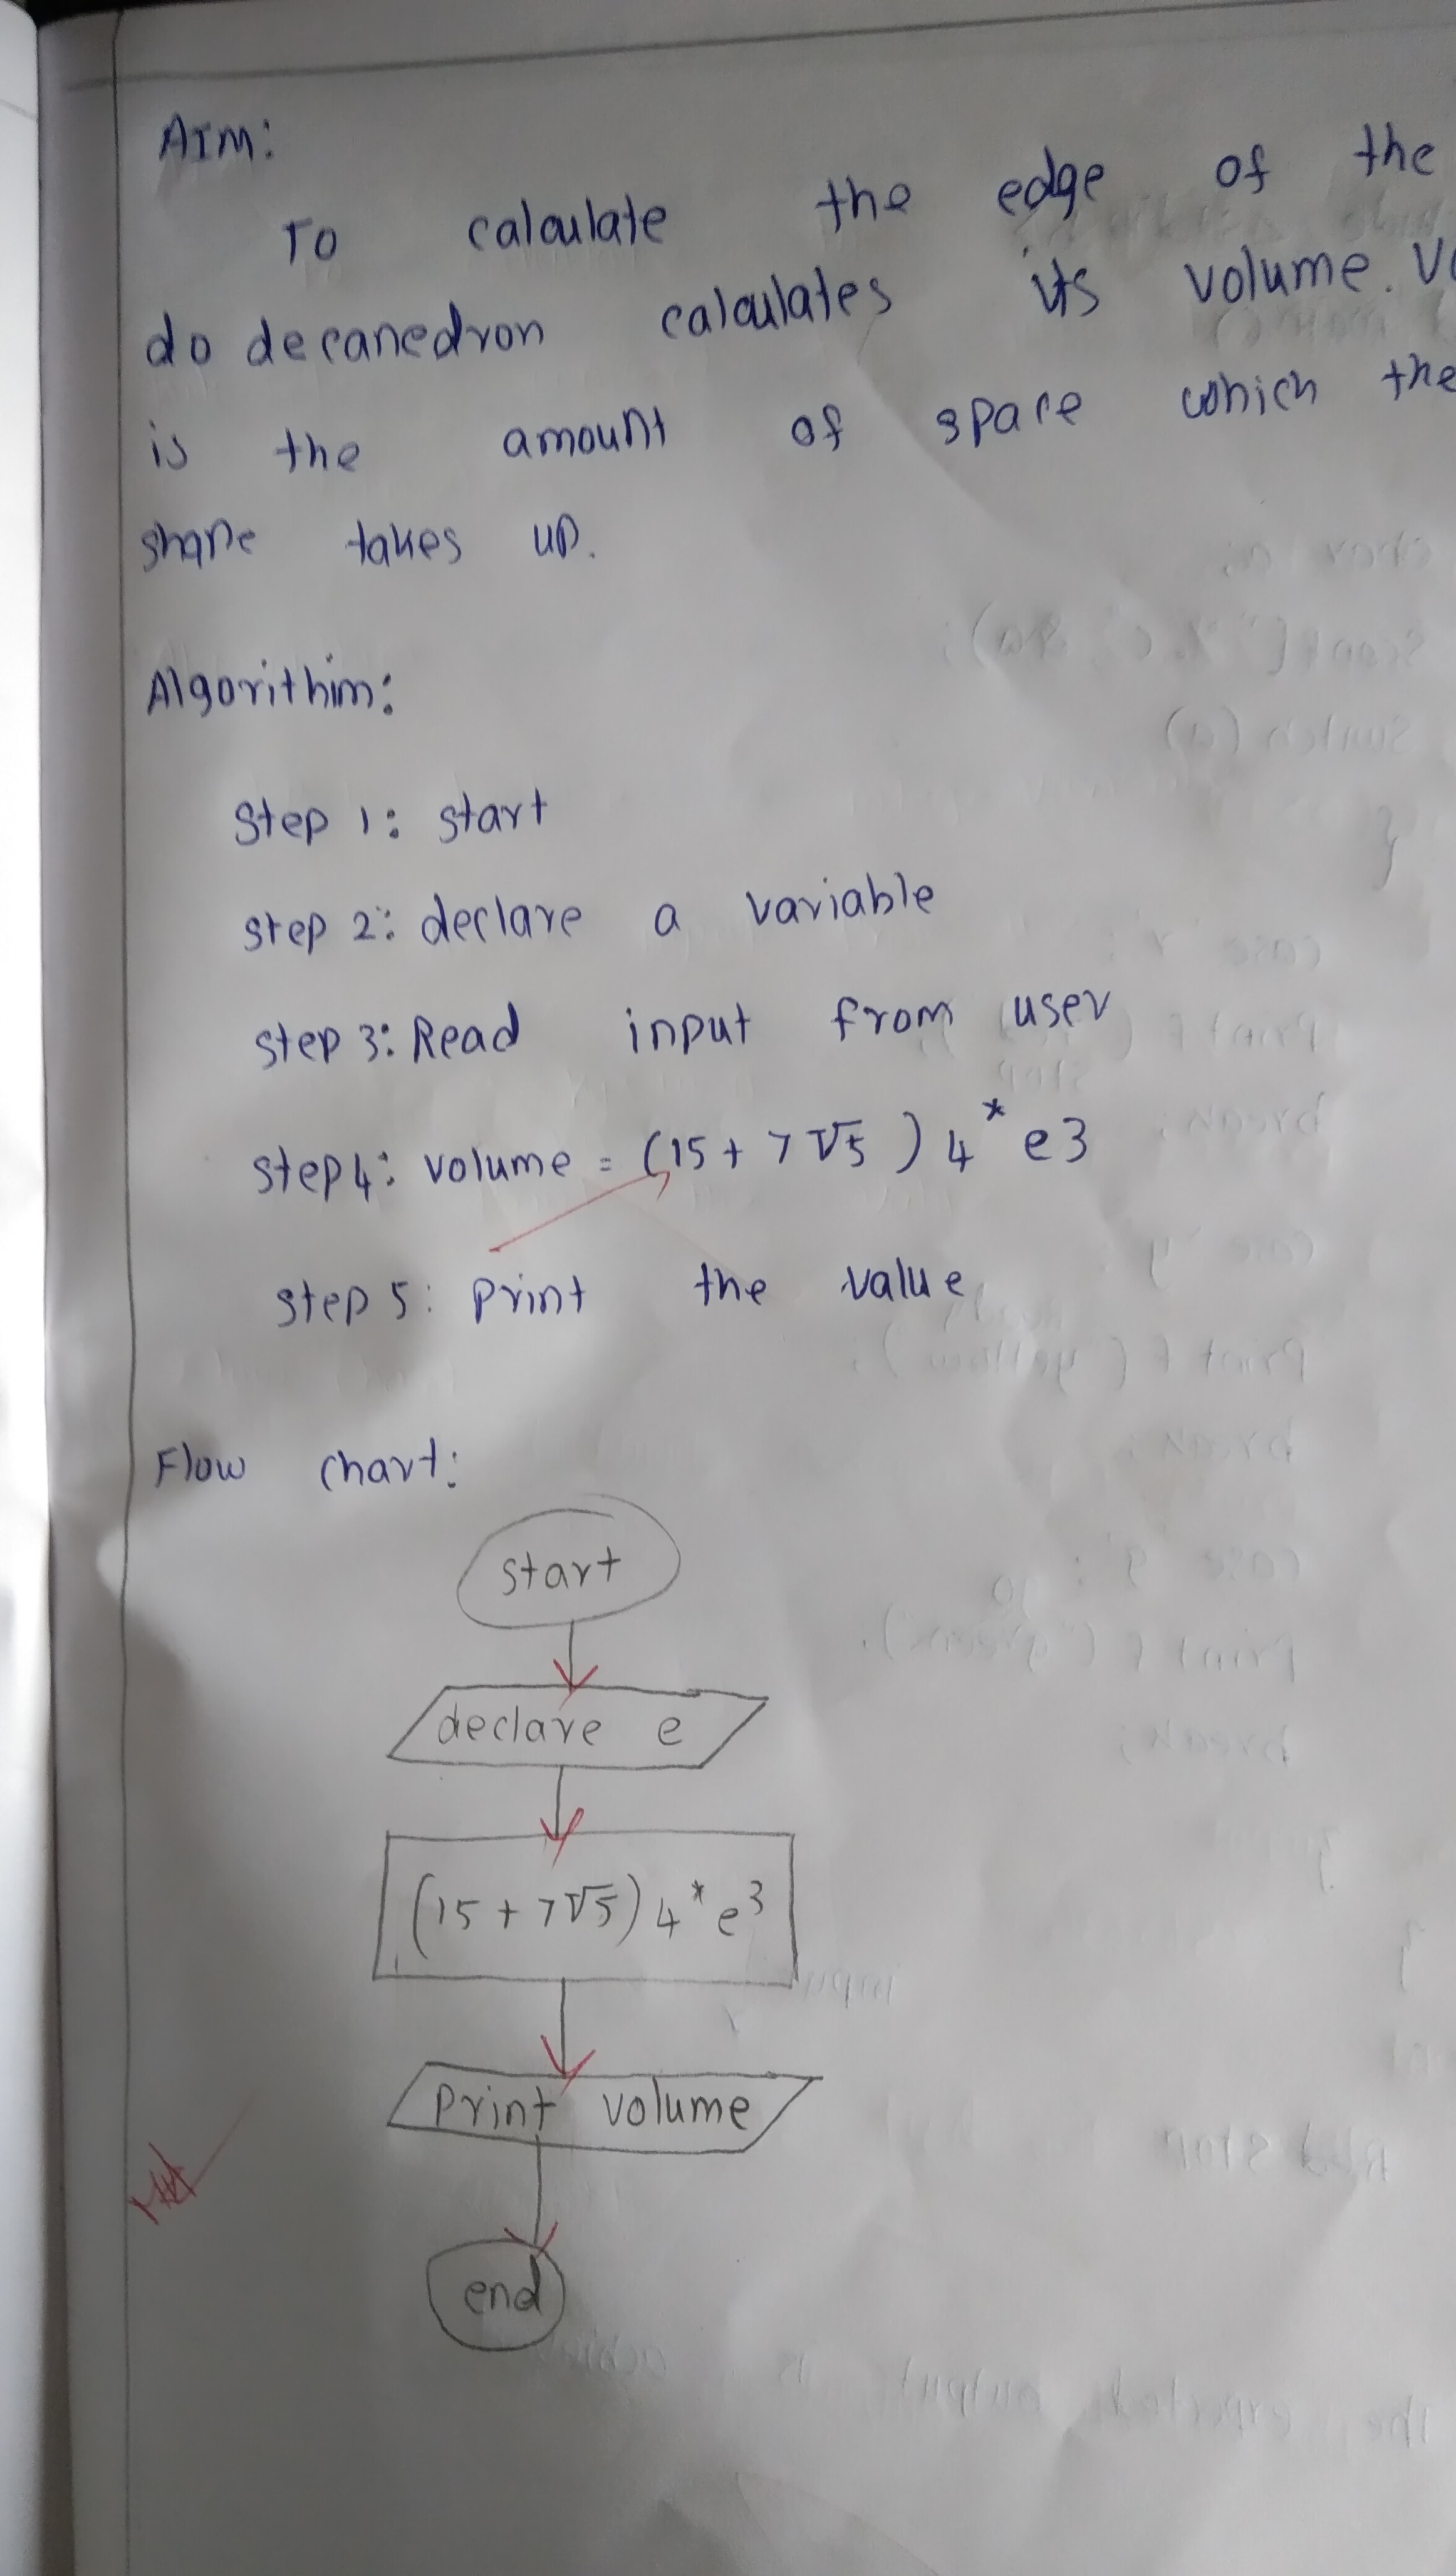 AIM:
To calculate the edge of the
do decanedron calculates its volume.
is the amount of space which the
shape takes up.
Algorithim:
Step 1: start
step 2: declare a variable
step 3: Read input from user
step 4: volume = (15 + 7√5 ) 4 * e3
step 5: print the value
Flow chart:
start
declare e
(15 + 7√5) 4 * e³
print volume
end